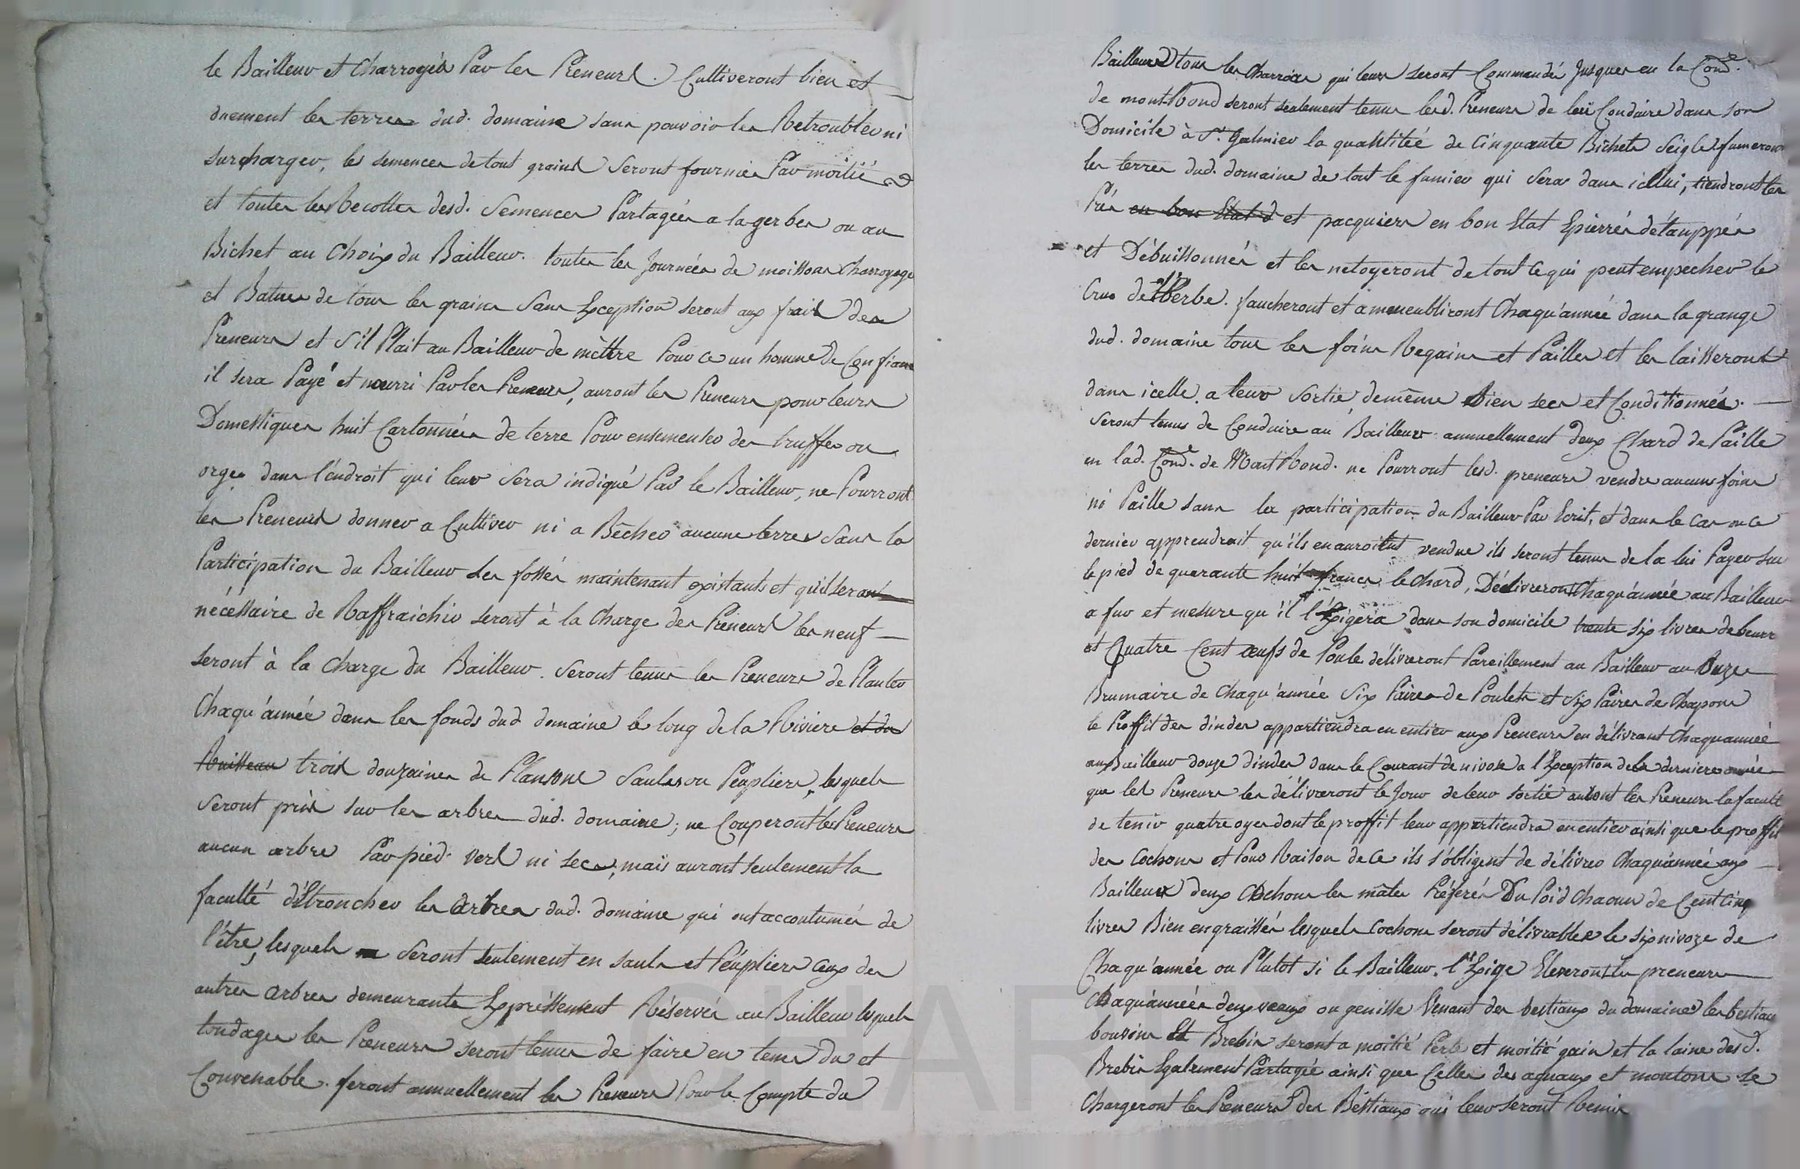 le Bailleur et Charroyés Par les Preneurs. Cultiveront bien et
duement les terres dud. domaine sans pouvoir les Retroubler ni
surcharger, les semences de tout grains seront fournies Par moitié
et toutes les Recoltes desd. Semences Partagées a la gerbe ou au
Bichet au Choix du Bailleur. toutes les Journées de moissons Charroyage
et Batures de tous les grains sans Exception seront aux frais des
Preneurs et S'il Plait au Bailleur de mettre Pour ce un homme de Confiance
il sera Payé et nourri Par les Preneurs, auront les Preneurs pour leurs
Domestiques huit Cartonnées de terre Pour ensemencer des truffes ou
orges dans l'endroit qui leur sera indiqué Par le Bailleur, ne Pourront
les Preneurs donner a Cultiver ni a Bêcher aucune terres Sans la
Participation du Bailleur les fossés maintenant existants et qu'il sera
nécéssaire de Raffraichir seront à la Charge des Preneurs les neuf
seront à la Charge du Bailleur. Seront tenus les Preneurs de Planter
Chaqu'année dans les fonds dud domaine le long de la Riviere et du
Ruisseau trois douzaines de Plansons Saules ou Peupliers, lesquels
Seront pris sur les arbres dud. domaine; ne Couperont les Preneurs
aucun arbre Par pied verd ni secs, mais auront seulement la
faculté d'Etroncher les arbres dud. domaine qui ont accoutumés de
l'être, lesquels seront seulement en saules et Peupliers ceux des
autres arbres demeurants Expréssement Réservés au Bailleur lesquels
tondages les Preneurs seront tenus de faire en tems du et
Convenable. feront annuellement les Preneurs Pour le Compte du
Bailleur tous les Charrois qui leurs seront Commandés Jusques en la Cond.
de mont-Rond seront sealement tenus lesd. Preneurs de lui Conduire dans son
Domicile à St. Galmier la quantitée de Cinquante Bichets Seigle fumeront
les terres dud. domaine de tout le fumier qui sera dans icellui, tiendront les
Prés en bon Etat d et pacquiers en bon Etat Epierrés détauppés
et Débuissonnés et les netoyeront de tout ce qui peut empecher le
Crus de l'Herbe. faucheront et ameubliront Chaqu'année dans la grange
dud. domaine tous les foins Regains et Pailles et les laisseront
dans icelle a leur Sortie de même Bien secs et Conditionnés.
Seront tenus de Conduire au Bailleur annuellement deux Chard de Paille
en lad. Cond. de Mont Rond. ne Pourront lesd. preneurs vendre aucuns foins
ni Paille sans la participation du Bailleur Par Ecrit, et dans le cas ou ce
dernier apprendroit qu'ils en auroient vendus ils seront tenus de la lui Payer sur
le pied de quarante huit francs le Chard, Délivreront Chaqu'année au Bailleur
a fur et mesure qu'il l'Exigera dans son domicile trente six livres de beurre
et Quatre Cent œufs de Poule délivreront Pareillement au Bailleur au Onze
Brumaire de Chaqu'année Six Paires de Poulets et Six Paires de Chapons
le Proffit des dindes appartiendra en entier aux Preneurs en délivrant Chaquannée
au Bailleur douze dindes dans le Courant de nivose a l'Exception de la derniere année
que les Preneurs les délivreront le Jour de leur sortie auront les Preneurs la faculté
de tenir quatre oyes dont le proffit leur appartiendra en entier ainsi que le proffit
des Cochons et Pour Raison de Ce ils s'obligent de délivrer Chaqu'année aux
Bailleur deux Cochons les mâles Préférés Du Poid Chacun de Cent Cinq
livres Bien engraissés lesquels Cochons seront délivrables le six nivoze de
Chaqu'année ou Plutot Si le Bailleur l'Exige Eleveront les preneurs
Chaquannées deux veaux ou genisse Venant des bestiaux du domaine les bestiaux
bouvins Et Brebis seront a moitié Perte et moitié gain et la laine desd.
Brebis Egalement Partagée ainsi que Celles des agneaux et moutons se
Chargeront les Preneurs des Béstiaux qui leur seront Remis